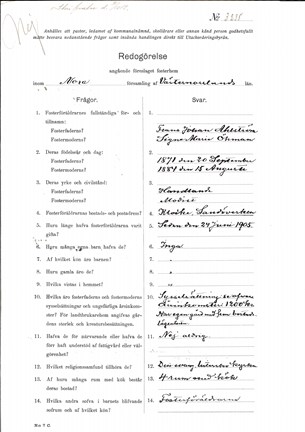 Nej
No 3235
Anhålles att pastor, betarnt af kommunalnämnd, skolföres eller annan känd person godhetsfullt
måtte besvara nedanstående frågor samt insända handlingen direkt till Utackorderingsbyrån.
Redogörelse
angående föreslaget fosterhem
inom Nora församling af Västernorrlands län.
Frågor.
Svar.
1. Fosterföräldrarnes fullständiga för- och
tillnamn:
Fosterfaderns?
Frans Johan Ahlström
Fostermoderns?
Signe Maria Öhman
2. Deras födelseår och dag:
Fosterfaderns?
1871 den 20 September
Fostermoderns?
1884 den 15 Augusti
3. Deras yrke och civilstånd:
Fosterfaderns?
Handlande
Fostermoderns?
Modist
4. Fosterföräldrarnes bostads- och postadress?
4. Sandviken
5. Huru länge hafva fosterföräldrarne varit
gifta?
5. Sedan den 24 Juni 1905
6. Huru många egna barn, hafva de?
6. Inga
7. Af hvilket kön äro barnen?
7. "
8. Huru gamla äro de?
8. "
9. Hvilka vistas i hemmet?
9. "
10. Hvilka äro fosterfaderns och fostermoderns
sysselsättningar och ungefärliga årsinkomster?
För landtbrukarehem angifvas gårdens
storlek och kreatursbesättningen.
10. Sysselsättning
Årsinkomster 1200 kr
Har egen gård
11. Hafva de för närvarande eller hafva de
förr haft understöd af fattigvård eller välgörenhet?
11. Nej aldrig
12. Hvilket religionssamfund tillhöra de?
12. Den svensk lutherska kyrkan
13. Af huru många rum med kök består
deras bostad?
13. 4 rum med kök
14. Hvilka andra söfva i barnets blifvande
sofrum och af hvilket kön?
14. Fosterföräldrarne
No 7 C